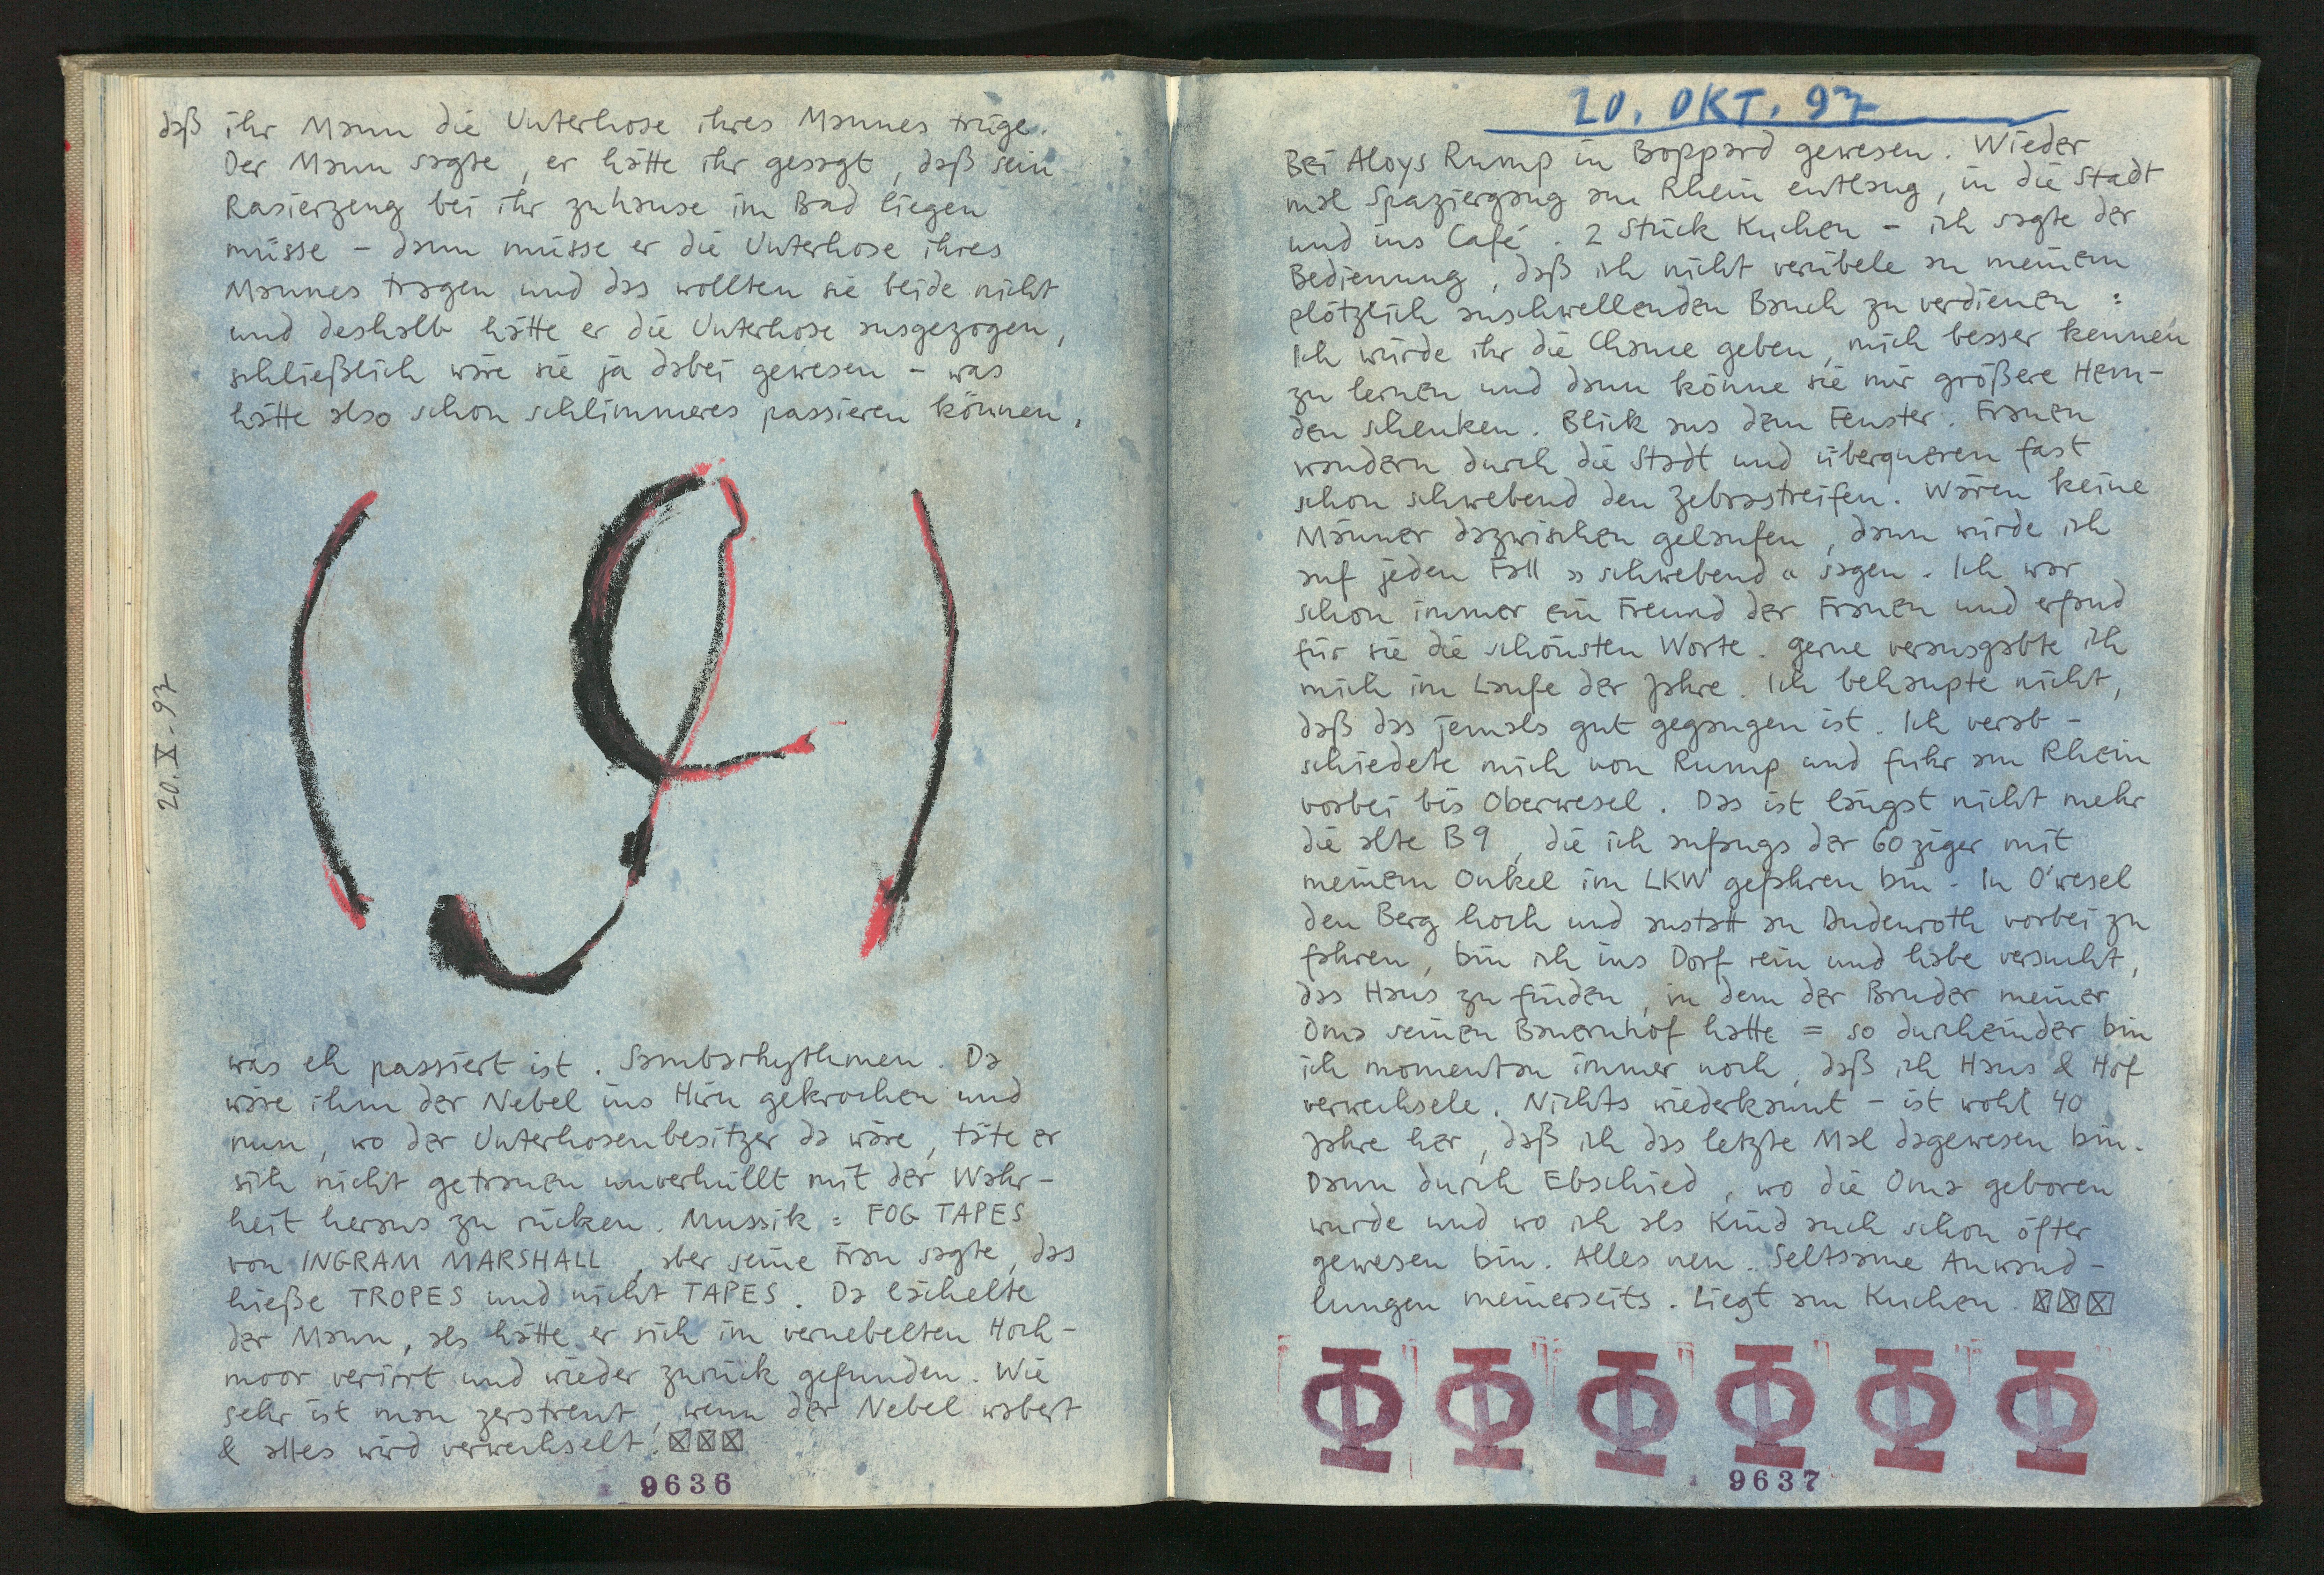 daß ihr Mann die Unterhose ihres Mannes trüge.
Der Mann sagte, er hätte ihr gesagt, daß sein
Rasierzeug bei ihr zuhause im Bad liegen
müsse – dann müsse er die Unterhose ihres
Mannes tragen und das wollten sie beide nicht
und deshalb hätte er die Unterhose ausgezogen,
schließlich wäre sie ja dabei gewesen – was
hätte also schon schlimmeres passieren können,
20.X.97
was eh passiert ist. Sambarhythmen. Da
wäre ihm der Nebel ins Hirn gekrochen und
nun, wo der Unterhosenbesitzer da wäre, täte er
sich nicht getrauen unverhüllt mit der Wahr-
heit heraus zu rücken. Mussik: FOG TAPES
von INGRAM MARSHALL, aber seine Frau sagte, das
hieße TROPES und nicht TAPES. Da lächelte
der Mann, als hätte er sich im vernebelten Hoch-
moor verirrt und wieder zurück gefunden. Wie
sehr ist man zerstreut, wenn der Nebel wabert
& alles wird verwechselt! ☒☒☒
9636
20. OKT. 97
Bei Aloys Rump in Boppard gewesen. Wieder
mal Spaziergang am Rhein entlang, in die Stadt
und ins Café. 2 Stück Kuchen – ich sagte der
Bedienung, daß ich nicht verübele an meinem
plötzlich anschwellenden Bauch zu verdienen:
Ich würde ihr die Chance geben, mich besser kennen
zu lernen und dann könne sie mir größere Hem-
den schenken. Blick aus dem Fenster. Frauen
wandern durch die Stadt und überqueren fast
schon schwebend den Zebrastreifen. Wären keine
Männer dazwischen gelaufen, dann würde ich
auf jeden Fall »schwebend« sagen. Ich war
schon immer ein Freund der Frauen und erfand
für sie die schönsten Worte. Gerne verausgabte ich
mich im Laufe der Jahre. Ich behaupte nicht,
daß das jemals gut gegangen ist. Ich verab-
schiedete mich von Rump und fuhr am Rhein
vorbei bis Oberwesel. Das ist längst nicht mehr
die alte B9, die ich anfangs der 60ziger mit
meinem Onkel im LKW gefahren bin. In O'wesel
den Berg hoch und anstatt an Dudenroth vorbei zu
fahren, bin ich ins Dorf rein und habe versucht,
das Haus zu finden, in dem der Bruder meiner
Oma seinen Bauernhof hatte = so durcheinder bin
ich momentan immer noch, daß ich Haus & Hof
verwechsele. Nichts wiederkannt – ist wohl 40
Jahre her, daß ich das letzte Mal dagewesen bin.
Dann durch Ebschied, wo die Oma geboren
wurde und wo ich als Kind auch schon öfter
gewesen bin. Alles neu. Seltsame Anwand-
lungen meinerseits. Liegt am Kuchen. ☒☒☒
9637